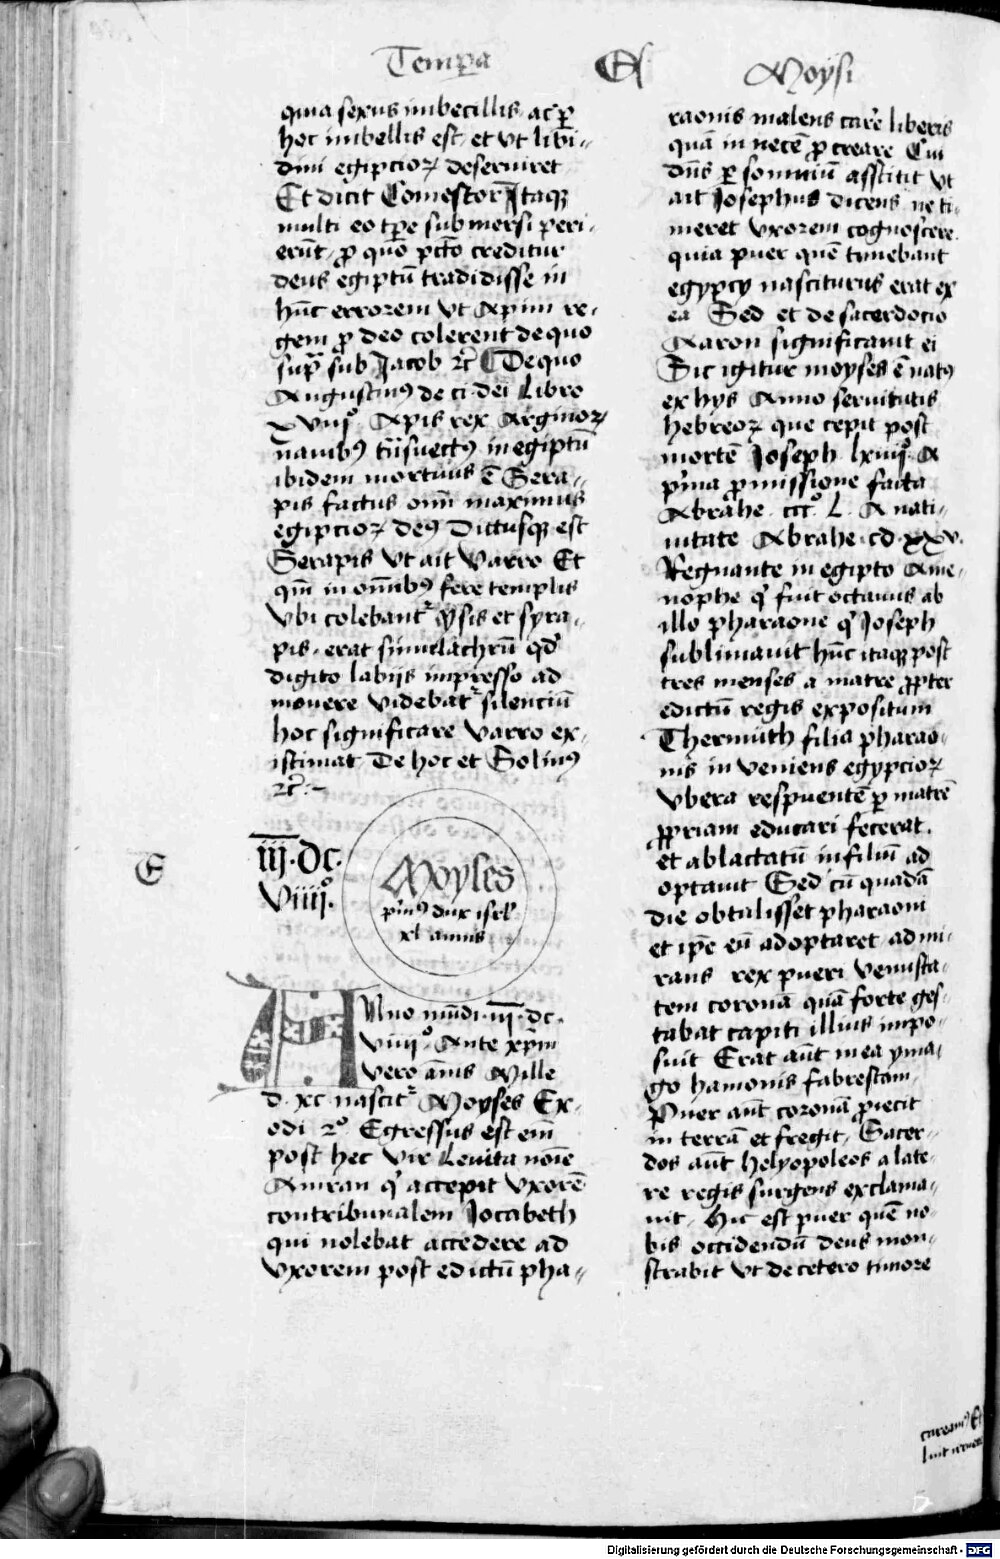 Tempa Et Moysi
quia sexus imbecillis, ac p̱
hoc imbellis est, et vt libi-
dini egipcioꝝ deserviret
Et dicit Comestor Itaqꝫ
multi eo tp̄e submersi peri-
erūt, ꝓ quo pctō creditur
deus egiptū tradidisse in
hūc errorem vt Apim re-
gem ꝓ deo colerent de quo
supͣ sub Jacob ꝛc De quo
Augustinꝰ de ci. dei Libro
xviijͦ. Apis rex Arginoꝝ
navibꝰ trāsvectꝰ in egiptū
ibidem mortuus ē Sera-
pis factus omī maximus
egipcioꝝ deꝰ Dictusqꝫ est
Serapis vt ait Varro Et
qm̄ in omībꝰ fere templis
vbi colebantᷣ ysis et syra-
pis, erat simulachrū qd̄
digito labijs impresso ad
movere videbatᷣ silenciū
hoc significare varro ex-
istimat De hoc et Solinꝰ
ꝛc̄
E
iij. dc.
viiijͦ.
Moyses
pᷓmꝰ dux isrl̄
xl annis
Anno mūdi. iij. dc.
viiijͦ. Ante xp̄m
vero ānis Mille
d. xc nascitᷣ Moyses Ex-
odi 2ͦ Egressus est eīn
post hec vir Levita noīe
Amran qͥ accepit vxorē
contribunalem Jocabeth
qui nolebat accedere ad
vxorem post edictū pha-
raonis malens carē liberis
quā in necē ꝓcreare Cui
dn̄s ꝑ somniū asstitit vt
ait Josephus dicens ne ti-
meret vxorem cognoscere
quia puer quē timebant
egypcy nasciturus erat ex
ea Sed et de sacerdocio
Aaron significavit ei
Sic igitur moyses ē natꝰ
ex hys Anno servitutis
hebreoꝝ que cepit post
mortē Joseph lxiiijͦ. A
pͥma ꝓmissione facta
Abrahe. cccͦ. L. A nati-
vitate Abrahe. cd xxv.
Regnante in egipto Ame-
nophe qͥ fuit octavus ab
illo pharaone qͥ Joseph
sublimavit hūc itaqꝫ post
tres menses a matre ꝓpter
edictū regis expositum
Thermuth filia pharao-
nis inveniens egypcioꝝ
vbera respuentē ꝑ matrē
ꝓpriam educari fecerat,
et ablactatū in filiū ad
optavit Sed cū quadā
die obtulisset pharaoni
et ip̄e eū adoptaret, admi-
rans rex pueri venusta-
tem coronā quā forte ges-
tabat capiti illius impo-
suit Erat aūt in ea yma-
go hamonis fabrefcam,
Puer aūt coronā ꝓiecit
in terrā et fregit, Sacer-
dos aūt helyopoleos a late-
re regis surgens exclama-
vit, Hic est puer quē no-
bis occidendū deus mon-
stravit vt de cetero timore
careamꝰ Et
Digitalisierung gefördert durch die Deutsche Forschungsgemeinschaft - DFG